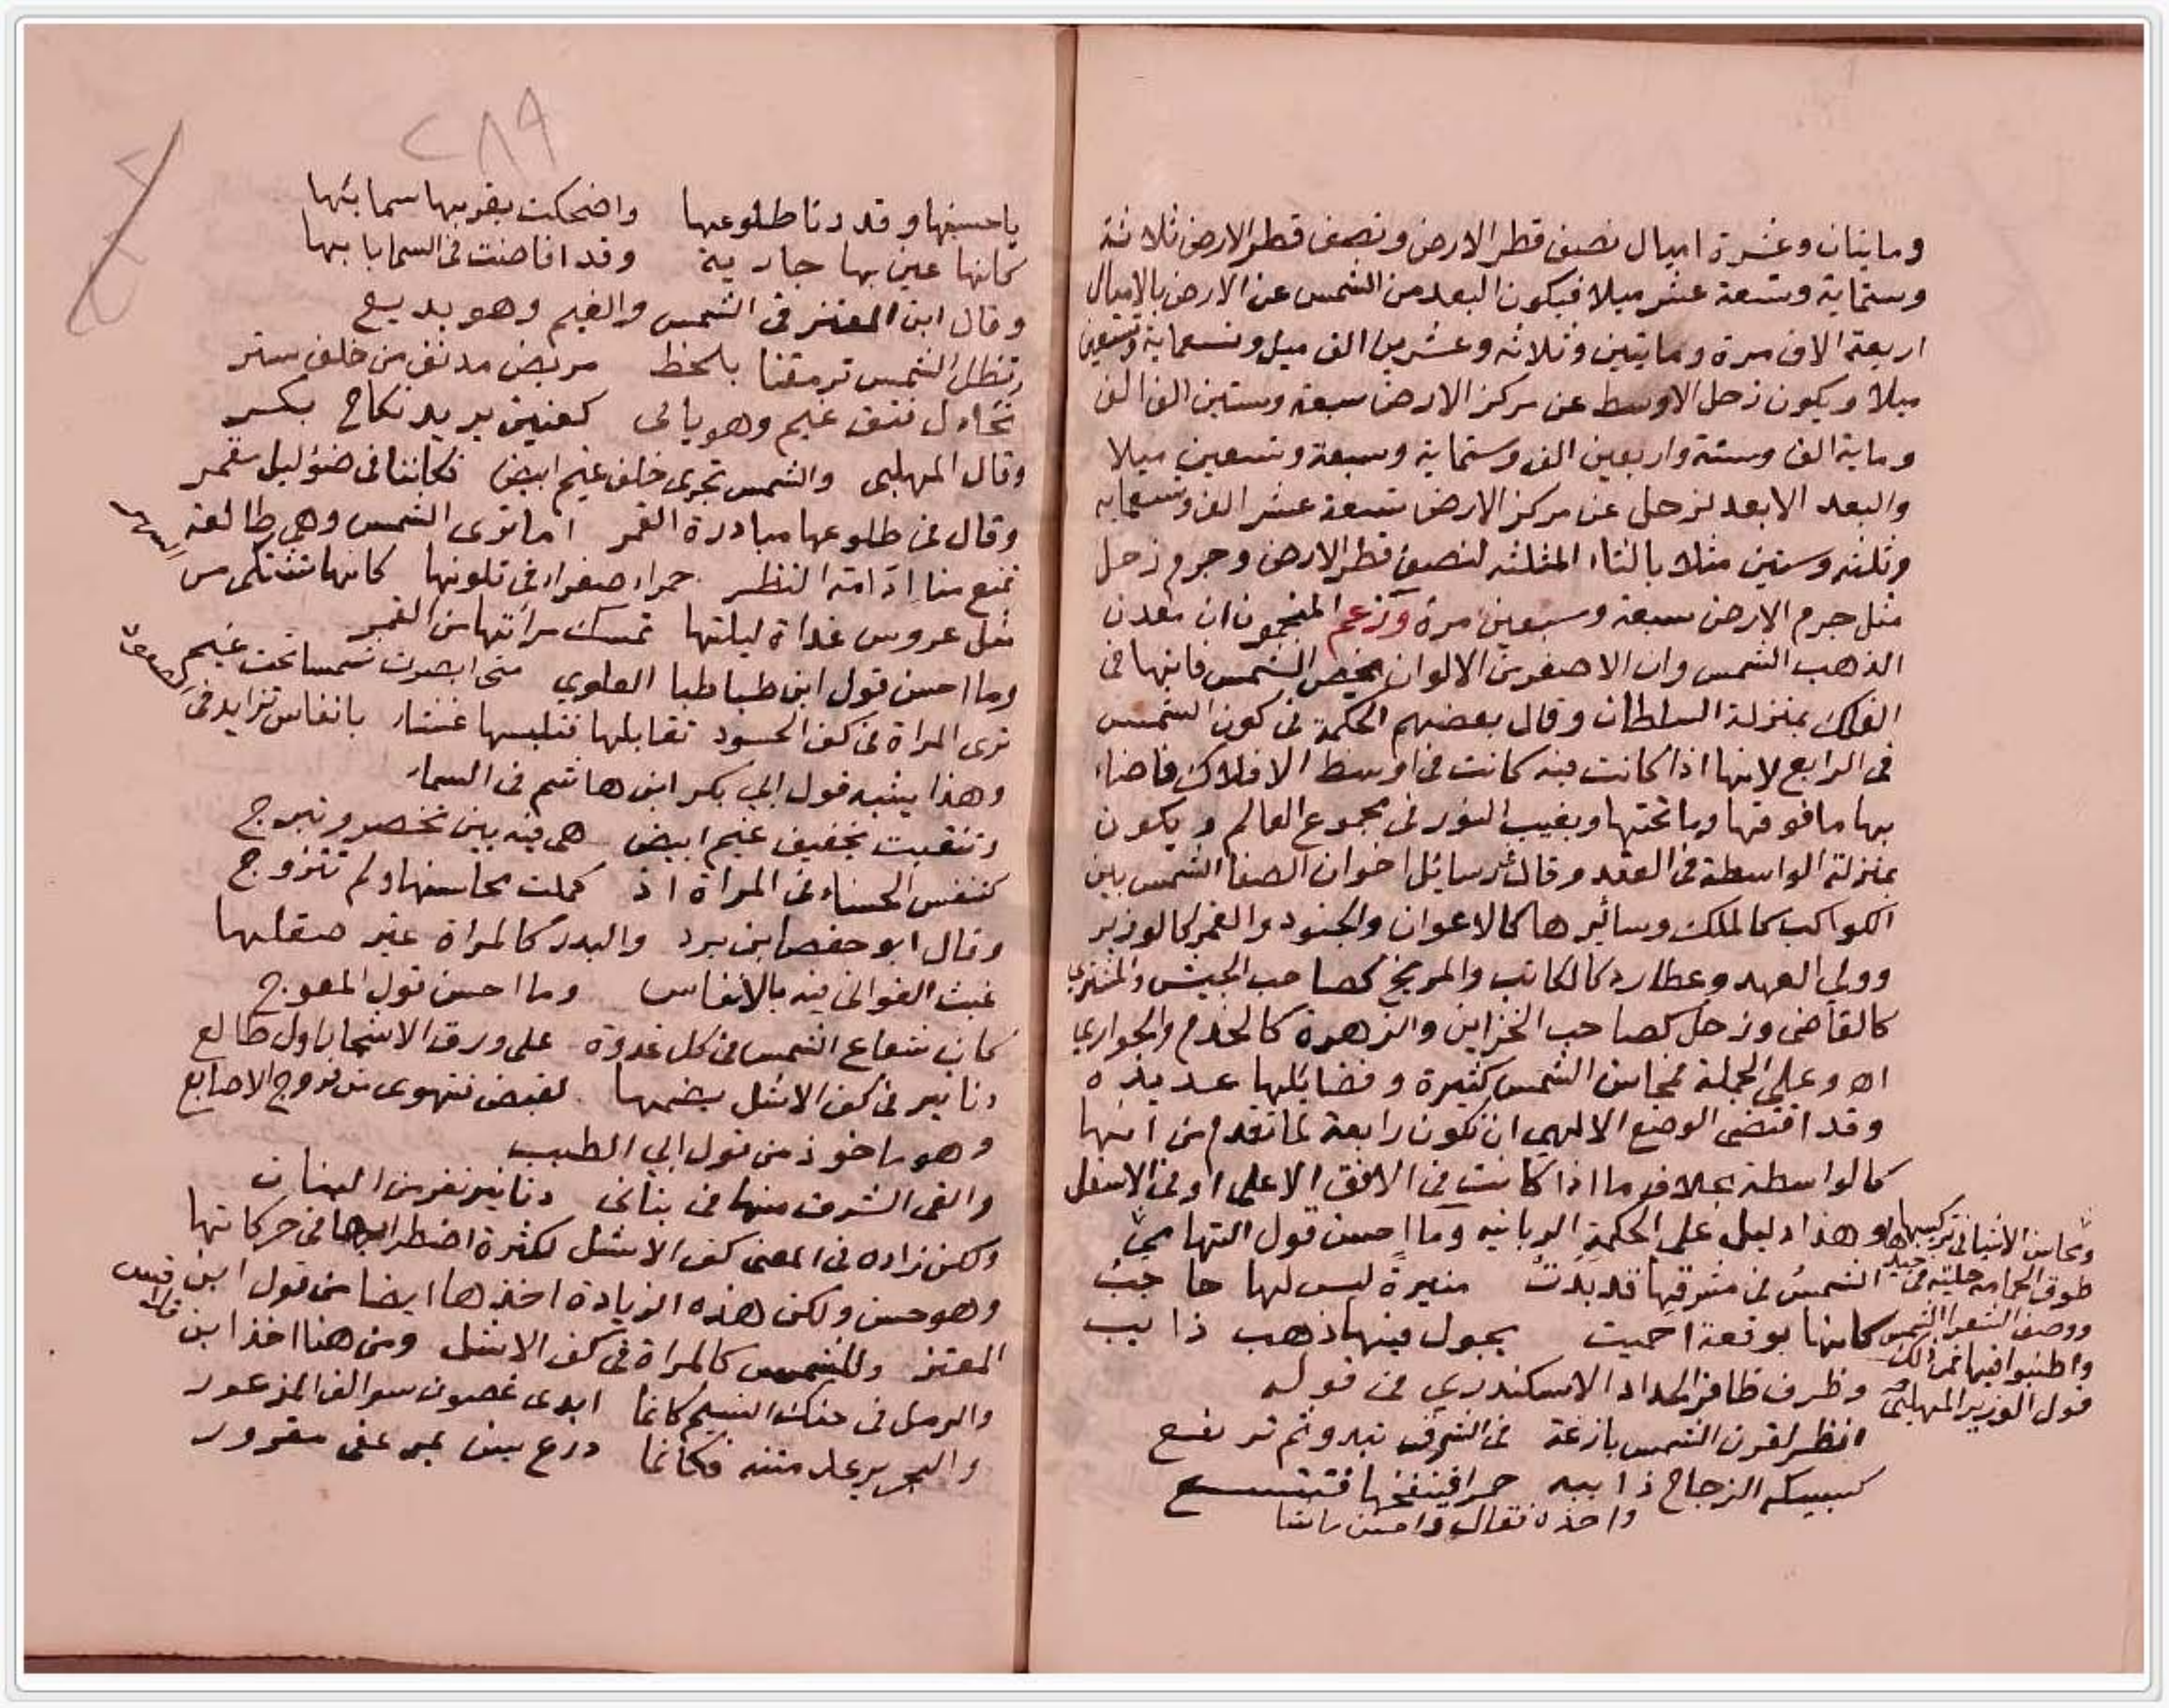 وماتيان وعشرة اميال نصف قطر الارض ونصف قطر الارض ثلاثة
وستماية وتسعة عشر ميلا فيكون البعد من الشمس عن الارض بالاميال
اربعة الاف مرة ومايتين وثلاثه وعشرين الف ميل وتسعماية وتسعين
ميلا ويكون زحل الاوسط عن مركز الارض سبعة وستين الف الف
وماية الف وستة واربعين الف وستماية وسبعة وتسعين ميلا
والبعد الابعد لزحل عن مركز الارض تسعة عشر الف وتسعمايه
وثلثه وستين مثلا بالثاء المثلثه لنصف قطر الارض وجرم زحل
مثل جرم الارض سبعة وسبعين مرة وزعم المنجمون ان معدن
الذهب الشمس وان الاصفر من الالوان يخص الشمس فانها في
الفلك بمنزلة السلطان وقال بعضهم الحكمة في كون الشمس
في الرابع لانها اذا كانت فيه كانت في اوسط الافلاك فاضاء
بها ما فوقها وما تحتها ويغيب النور في مجموع العالم ويكون
بمنزلة الواسطة في العقد وقال رسايل اخوان الصفا الشمس بين
الكواكب كالملك وسائرها كالاعوان والجنود والقمر كالوزير
وولي العهد وعطارد كالكاتب والمريخ كصاحب الجيش والمشتري
كالقاضى وزحل كصاحب الخزاين والزهرة كالخدم والجواري
اه وعلى الجملة فمحاسن الشمس كثيرة وفضايلها عديده
وقد اقتضى الوضع الالهي ان تكون رابعة لما تقدم من انها
كالواسطة بخلاف ما اذا كانت في الافق الاعلى او في الاسفل
وهذا دليل على الحكمة الربانيه وما احسن قول التهامي
الشمس في مشرقها قد بدت منيرة ليس لها حاجب
كانها بوتقة احميت يجول فيها ذهب ذايب
وظرف ظافر الحداد الاسكندري في قوله
انظر لقرن الشمس بازغة في الشرق تبدو ثم ترتفع
كسبيكه الزجاج ذايبه حمرا فينفخها فتتسع
ومحاسن الاشيا في تركيبها
طوق الحمامه حليته في جيدها
ووصف الشعرا الشمس
واطنبوا فيها فمن ذلك
قول الوزير المهلبي
٢٨٩
يا حسنها وقد دنا طلوعها واضحكت بقربها سمايها
كانها عين بها جارية وقد افاضت في السما بابها
وقال ابن المعتز في الشمس والغيم وهو بديع
تظل الشمس ترمقنا بلحظ مريض مدنف من خلف ستر
تحاول فتق غيم وهو يابى كعنين يريد نكاح بكر
وقال المهلبى والشمس تجرى خلف غيم ابيض فكاننا في ضؤ ليل مقمر
وقال في طلوعها مبادرة القمر اما ترى الشمس وهي طالعة
تمنع منا ادامة النظر حمراء صفراء في تلونها كانها تشتكى من السهر
مثل عروس غداة ليلتها تمسك مرآتها من القمر
وما احسن قول ابن طباطبا العلوي متى ابصرت شمسا تحت غيم
ترى المراة في كف الحسود تقابلها فتلبسها غشاء بانفاس تزايد في الصعود
وهذا يشبه قول ابي بكر ابن هاشم في السماء
وتنقبت بخفيف غيم ابيض هي فيه بين تخصر وتبرج
كتنفس الحسناء في المراة اذ كملت محاسنها ولم تتزوج
وقال ابو حفص ابن برد والبدر كالمراة غير صقلها
عبث الغواني فيه بالانفاس وما احسن قول المعوج
كان شعاع الشمس في كل غدوة على ورق الاشجار اول طالع
دنانير في كف الاشل يضمها لقبض فتهوى من فروج الاصابع
وهو ماخوذ من قول ابي الطيب
والقى الشرق منها في بناني دنانير تفر من البنان
ولكن زاده في المعنى كف الاشل لكثرة اضطرابها في حركاتها
وهو حسن ولكن هذه الزيادة اخذها ايضا من قول ابن
المعتز والشمس كالمراة في كف الاشل ومن هنا اخذ ابن
والرمل في حنك النسيم كانما ابدى غصون سوالف المذعور
والبحر يرعد متنه فكانما درع يشن